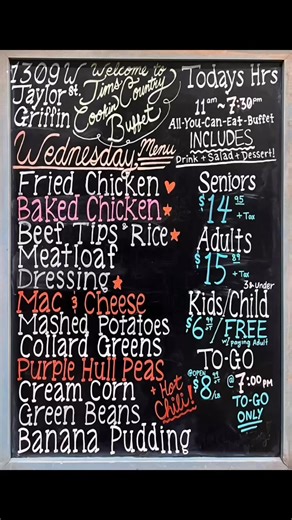 1309 W
Taylor St.
Griffin
Welcome to
Tims Country
Cookin
Buffet
Todays Hrs
11am ~ 7:30pm
All-You-Can-Eat-Buffet
INCLUDES
Drink + Salad + Dessert!
Wednesday Menu
Fried Chicken
Baked Chicken
Beef Tips & Rice
Meatloaf
Dressing
Mac & Cheese
Mashed Potatoes
Collard Greens
Purple Hull Peas
Cream Corn
Green Beans
Banana Pudding
+ Hot
Chili!
Seniors
$14.95
+ Tax
Adults
$15.89
+ Tax
Kids/Child
$6
3 & Under
FREE
w/ paying Adult
TO-GO
@OPEN
$8
@ 7:00 PM
TO-GO
ONLY